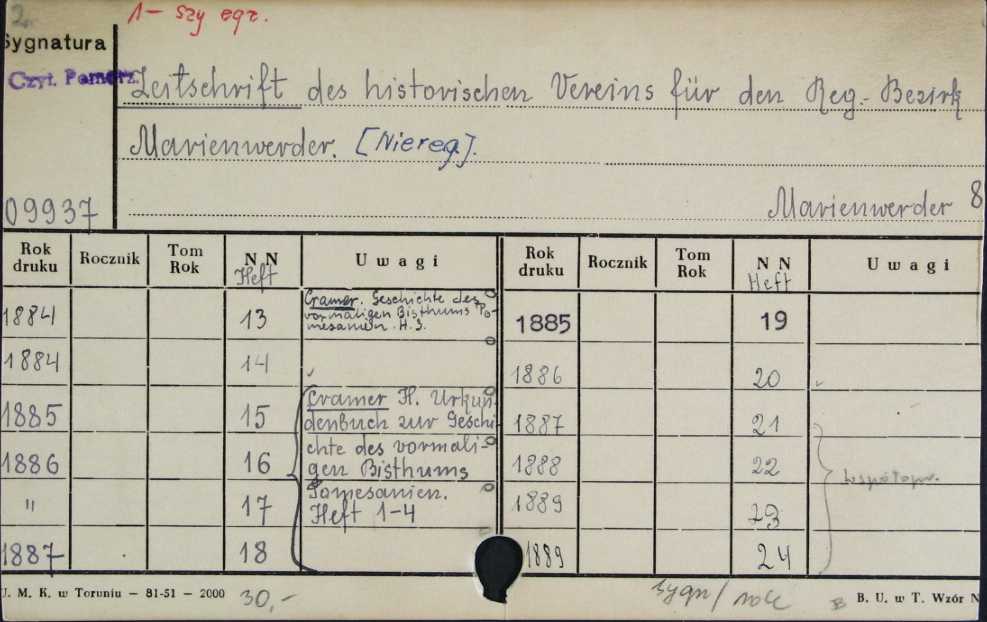 2.
1-szy egz.
Sygnatura
Czyt. Pomorz.
Zeitschrift des historischen Vereins für den Reg.-Bezirk
Marienwerder. [Niereg].
09937
Marienwerder 8
Rok druku Rocznik Tom Rok NN Heft Uwagi Rok druku Rocznik Tom Rok NN Heft Uwagi
1884 13 Cramer. Geschichte des vormaligen Bisthums Pomesanien. H. I. 1885 19
1884 14 1886 20
1885 15 Cramer H. Urkundenbuch zur Geschi- 1887 21
1886 16 chte des vormaligen Bisthums 1888 22
" 17 Pomesanien. Heft 1-4 1889 23
1887 18 1889 24
U. M. K. w Toruniu – 81-51 – 2000 30,-
sygn/
B. U. w T. Wzór N